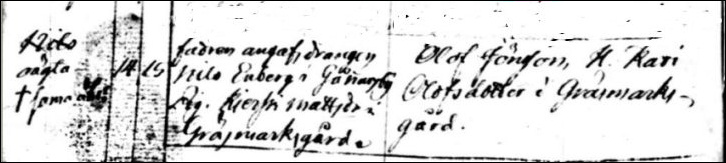 Nils
oägta
† samma
14 15
fadren angafs drängen
Nils Enberg i
Pig. Kierst. Mattsdr i
Gräsmarksgård.
Olof Jönsson, H. Kari
Olofsdotter i Gräsmarks-
gård.